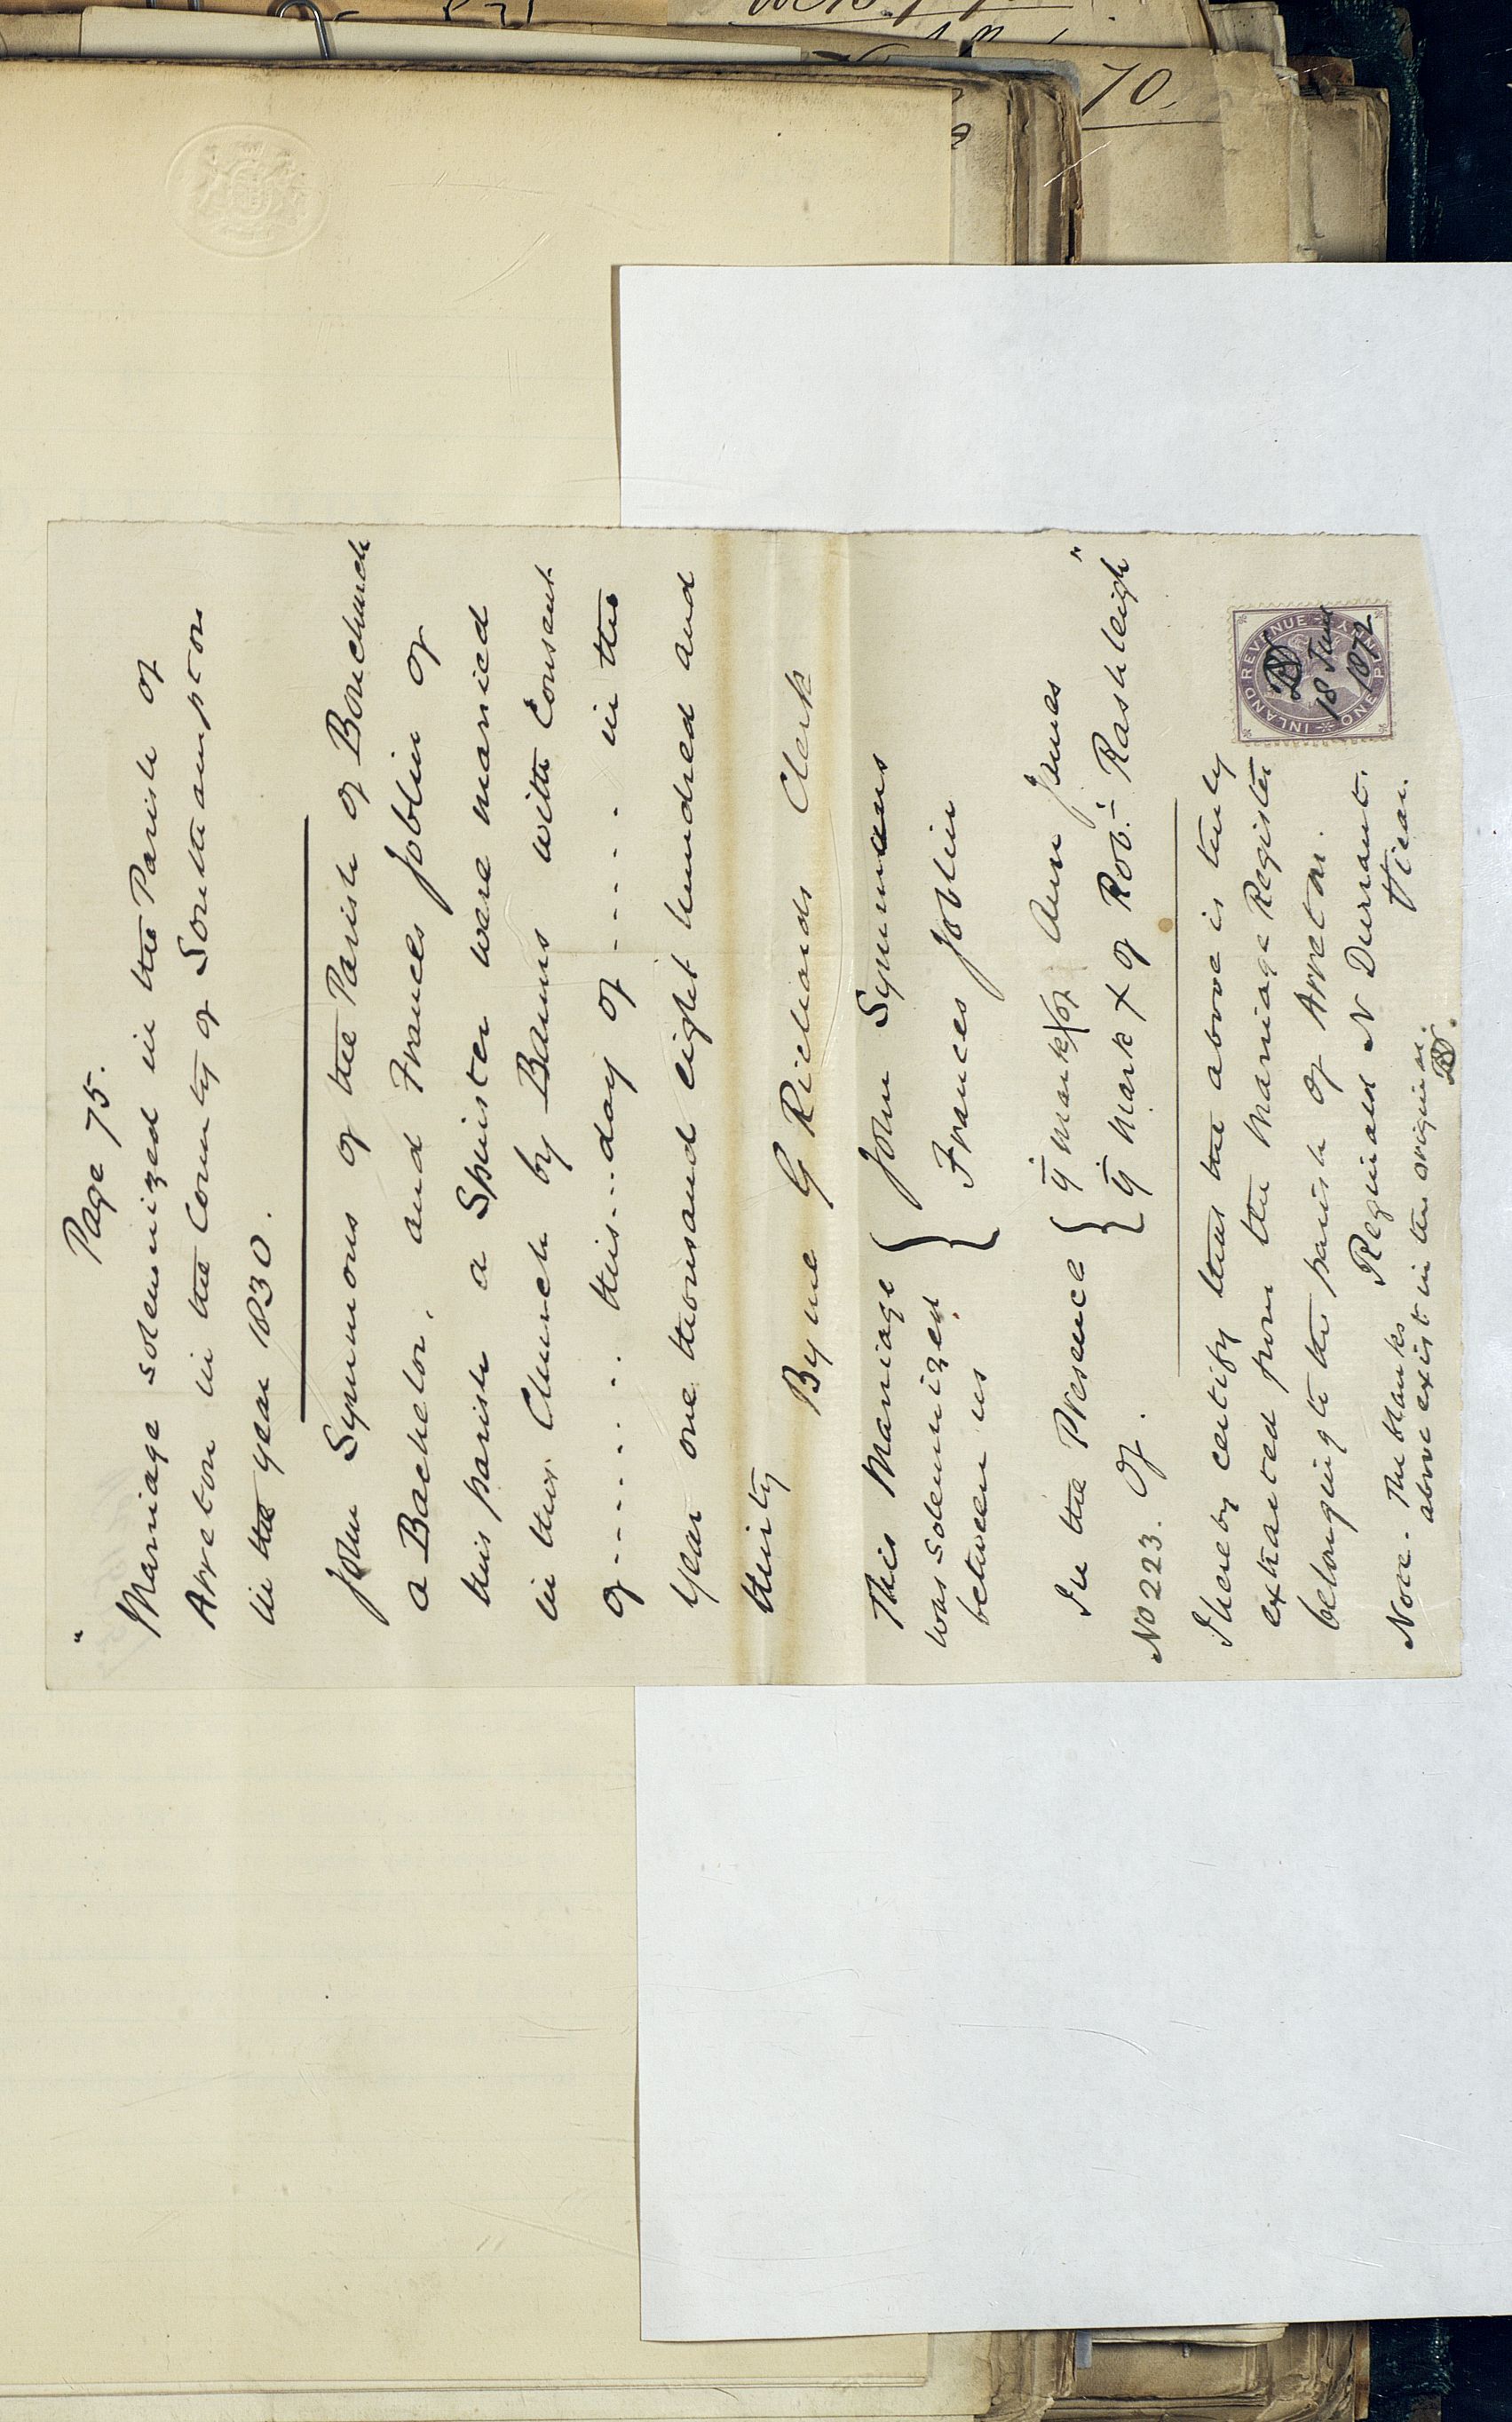 70.
"
Page 75.
Marriage solemnized in the Parish of
Arreton in the County of Southampton
in the year 1830.
John Symmons of the Parish of Bonchurch
a Bachelor, and Frances Joblin of
this parish a Spinster were married
in this Church by Banns with Consent
of - - - - - - this - - - day of - - - - - in the
Year one thousand eight hundred and
thirty
By me G Richards Clerk
This Marriage { John Symmons
was solemnized } Frances Joblin
between us
In the Presence { ye mark X of Ann James "
No 223. Of. { ye mark X of Robt Rashleigh "
I hereby certify that the above is truly
extracted from the Marriage Register
belonging to the parish of Arreton.
Reginald N Durrant.
Vicar.
Note. The blanks
above exist in the original.
RD.
INLAND REVENUE
ONE PENNY
RD
18 June
1872